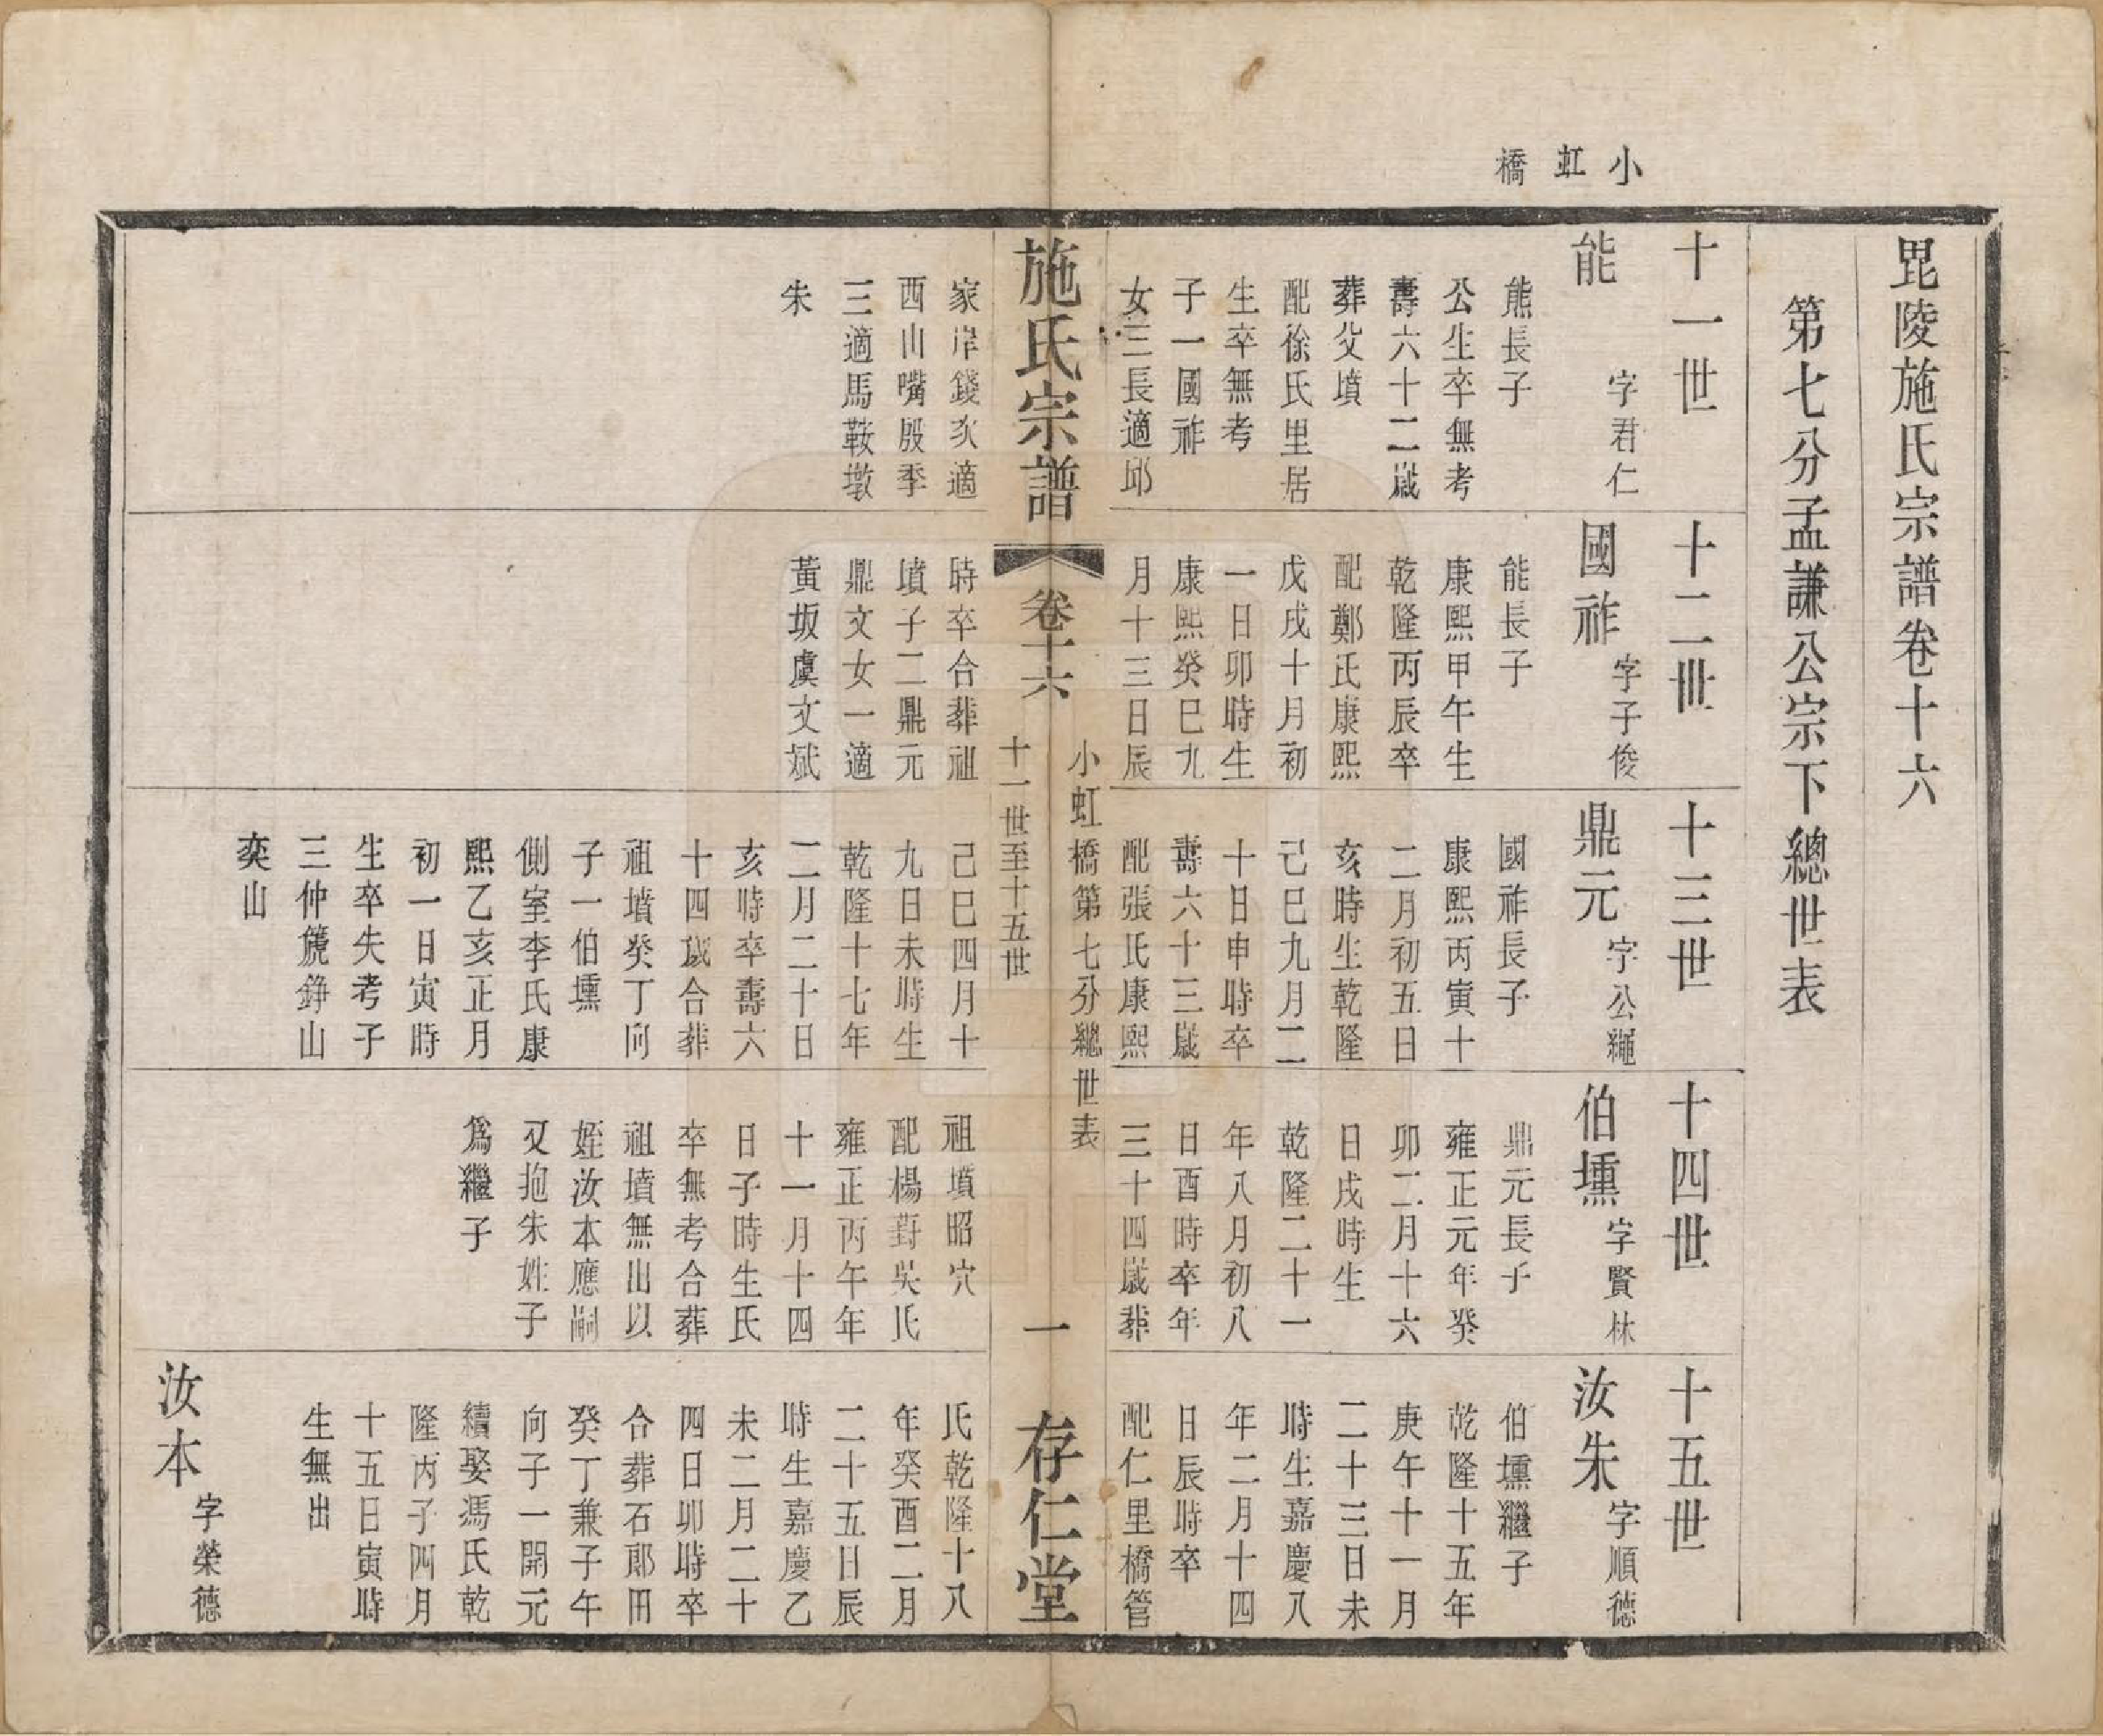 小虹橋
毘陵施氏宗譜卷十六
第七分孟謙公宗下總世表
十一世
能
字君仁
熊長子
公生卒無考
壽六十二歲
葬父墳
配徐氏里居
生卒無考
子一國祚
女三長適邱
家岸錢次適
西山嘴殷季
三適馬鞍墩
朱
十二世
國祚
字子俊
能長子
康熙甲午生
乾隆丙辰卒
配鄭氏康熙
戊戌十月初
一日卯時生
康熙癸巳九
月十三日辰
時卒合葬祖
墳子二鼎元
鼎文女一適
黃坂虞文斌
十三世
鼎元
字公繩
國祚長子
康熙丙寅十
二月初五日
亥時生乾隆
己巳九月二
十日申時卒
壽六十三歲
配張氏康熙
己巳四月十
九日未時生
乾隆十七年
二月二十日
亥時卒壽六
十四歲合葬
祖墳癸丁向
子一伯壎
側室李氏康
熙乙亥正月
初一日寅時
生卒失考子
三仲篪錚山
奕山
十四世
伯壎
字賢林
鼎元長子
雍正元年癸
卯二月十六
日戌時生
乾隆二十一
年八月初八
日酉時卒年
三十四歲葬
祖墳昭穴
配楊葑吳氏
雍正丙午年
十一月十四
日子時生氏
卒無考合葬
祖墳無出以
姪汝本應嗣
又抱朱姓子
爲繼子
十五世
汝朱
字順德
伯壎繼子
乾隆十五年
庚午十一月
二十三日未
時生嘉慶八
年二月十四
日辰時卒
配仁里橋管
氏乾隆十八
年癸酉二月
二十五日辰
時生嘉慶乙
未二月二十
四日卯時卒
合葬石郎田
癸丁兼子午
向子一開元
續娶馮氏乾
隆丙子四月
十五日寅時
生無出
汝本
字榮德
施氏宗譜
卷十六
小虹橋第七分總世表
十一世至十五世
一
存仁堂